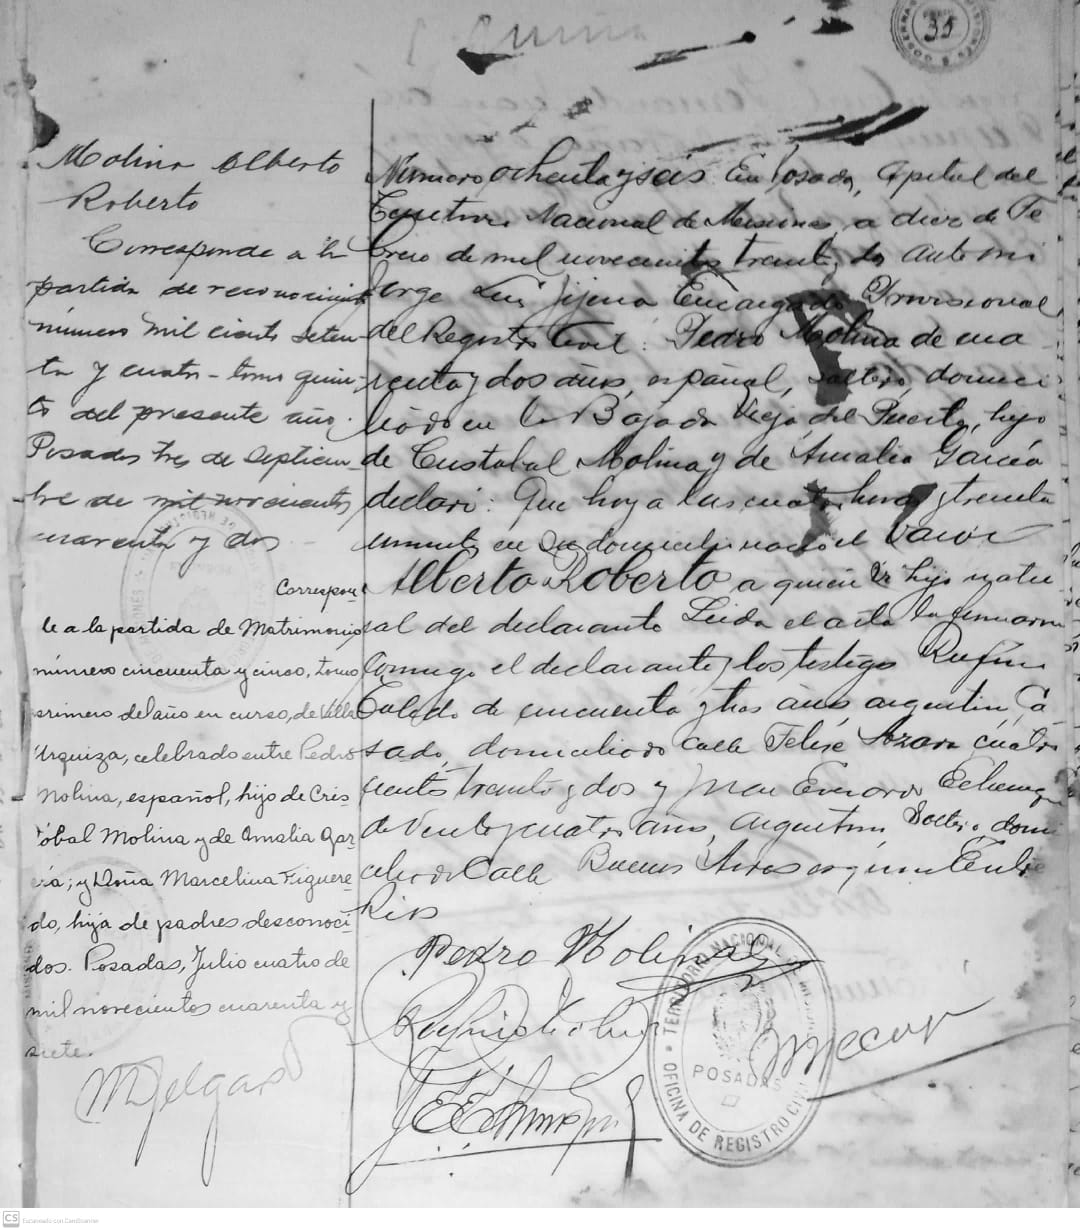 35
Molina Alberto
Roberto
Corresponde a la
partida de reconocimiento
número mil ciento seten-
ta y cuatro - tomo quin-
to del presente año.
Posadas tres de Septiem-
bre de mil novecientos
cuarenta y dos
Correspon-
de a la partida de Matrimonio
número cincuenta y cinco, tomo
primero del año en curso, de Villa
Urquiza, celebrado entre Pedro
Molina, español, hijo de Cris-
tóbal Molina y de Amalia Gar-
cía; y Doña Marcelina Figuere-
do, hija de padres desconoci-
dos. Posadas, Julio cuatro de
mil novecientos cuarenta y
siete.
Número ochenta y seis. En Posadas, Capital del
Territorio Nacional de Misiones, a diez de Fe
brero de mil novecientos treinta y dos ante mi
Jorge Luis Encargado Provisional
del Registro Civil: Pedro Molina de cua
renta y dos años, español, soltero, domici
liado en la Bajada Vieja del Puerto, hijo
de Cristobal Molina y de Amalia García
declaró: Que hoy a las cuatro horas y treinta
minutos en su domicilio nació el varón
Alberto Roberto a quien hijo natu
ral del declarante Leida el acta la firmaron
conmigo el declarante y los testigos Rufino
de cincuenta y tres años argentino, ca
sado, domiciliado calle Felix Azara cuatro
cientos treinta y dos y Juan
de veinte y cuatro años, argentino soltero, domi
ciliado Calle Buenos Aires esquina Entre
Rios
Pedro Molina
TERRITORIO NACIONAL DE MISIONES
POSADAS
OFICINA DE REGISTRO CIVIL
CS Escaneado con CamScanner